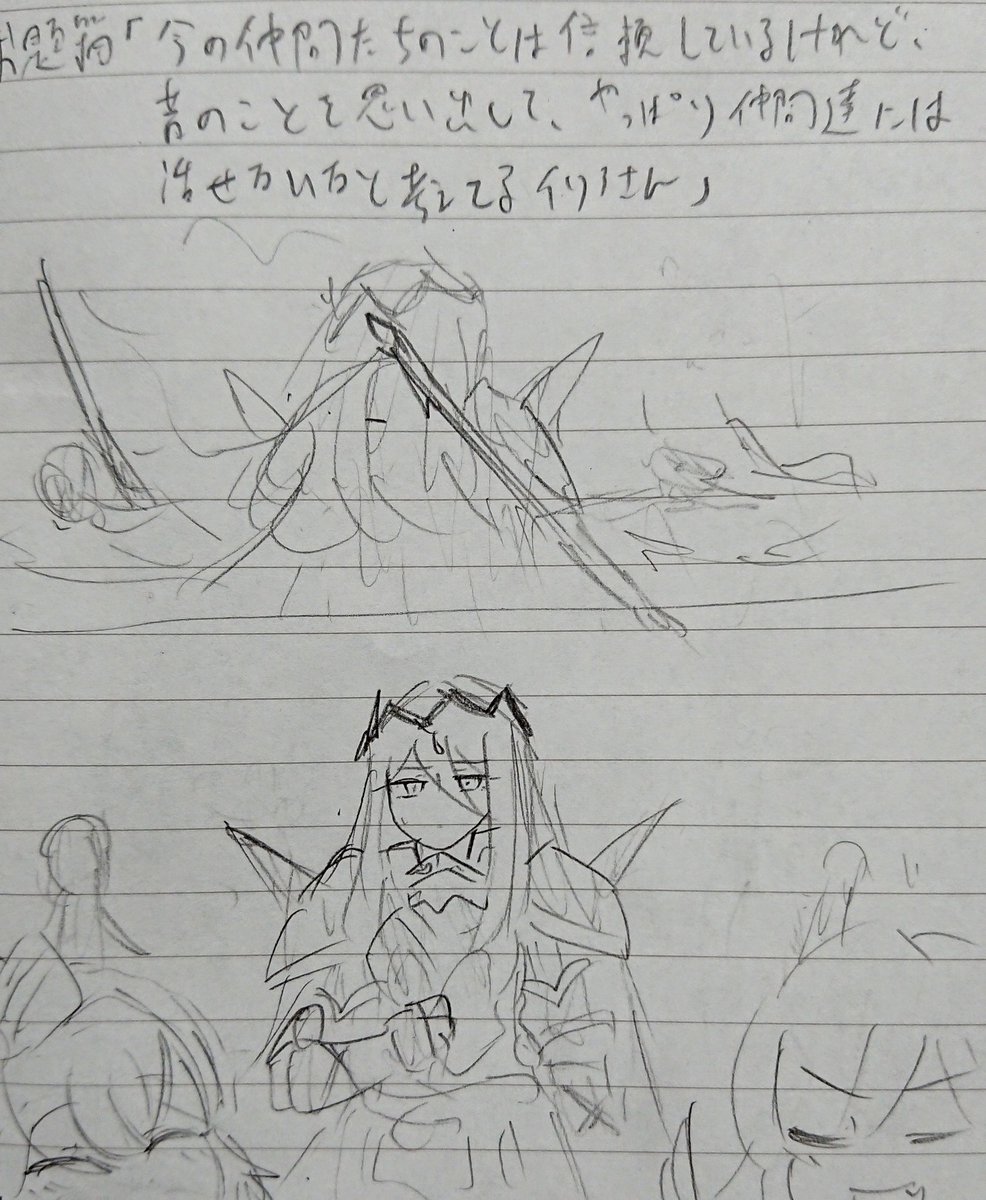 お題箱「今の仲間たちのことは信頼しているけれど、
昔のことを思い出して、やっぱり仲間達には
話せないなと考えてるイリノさん」